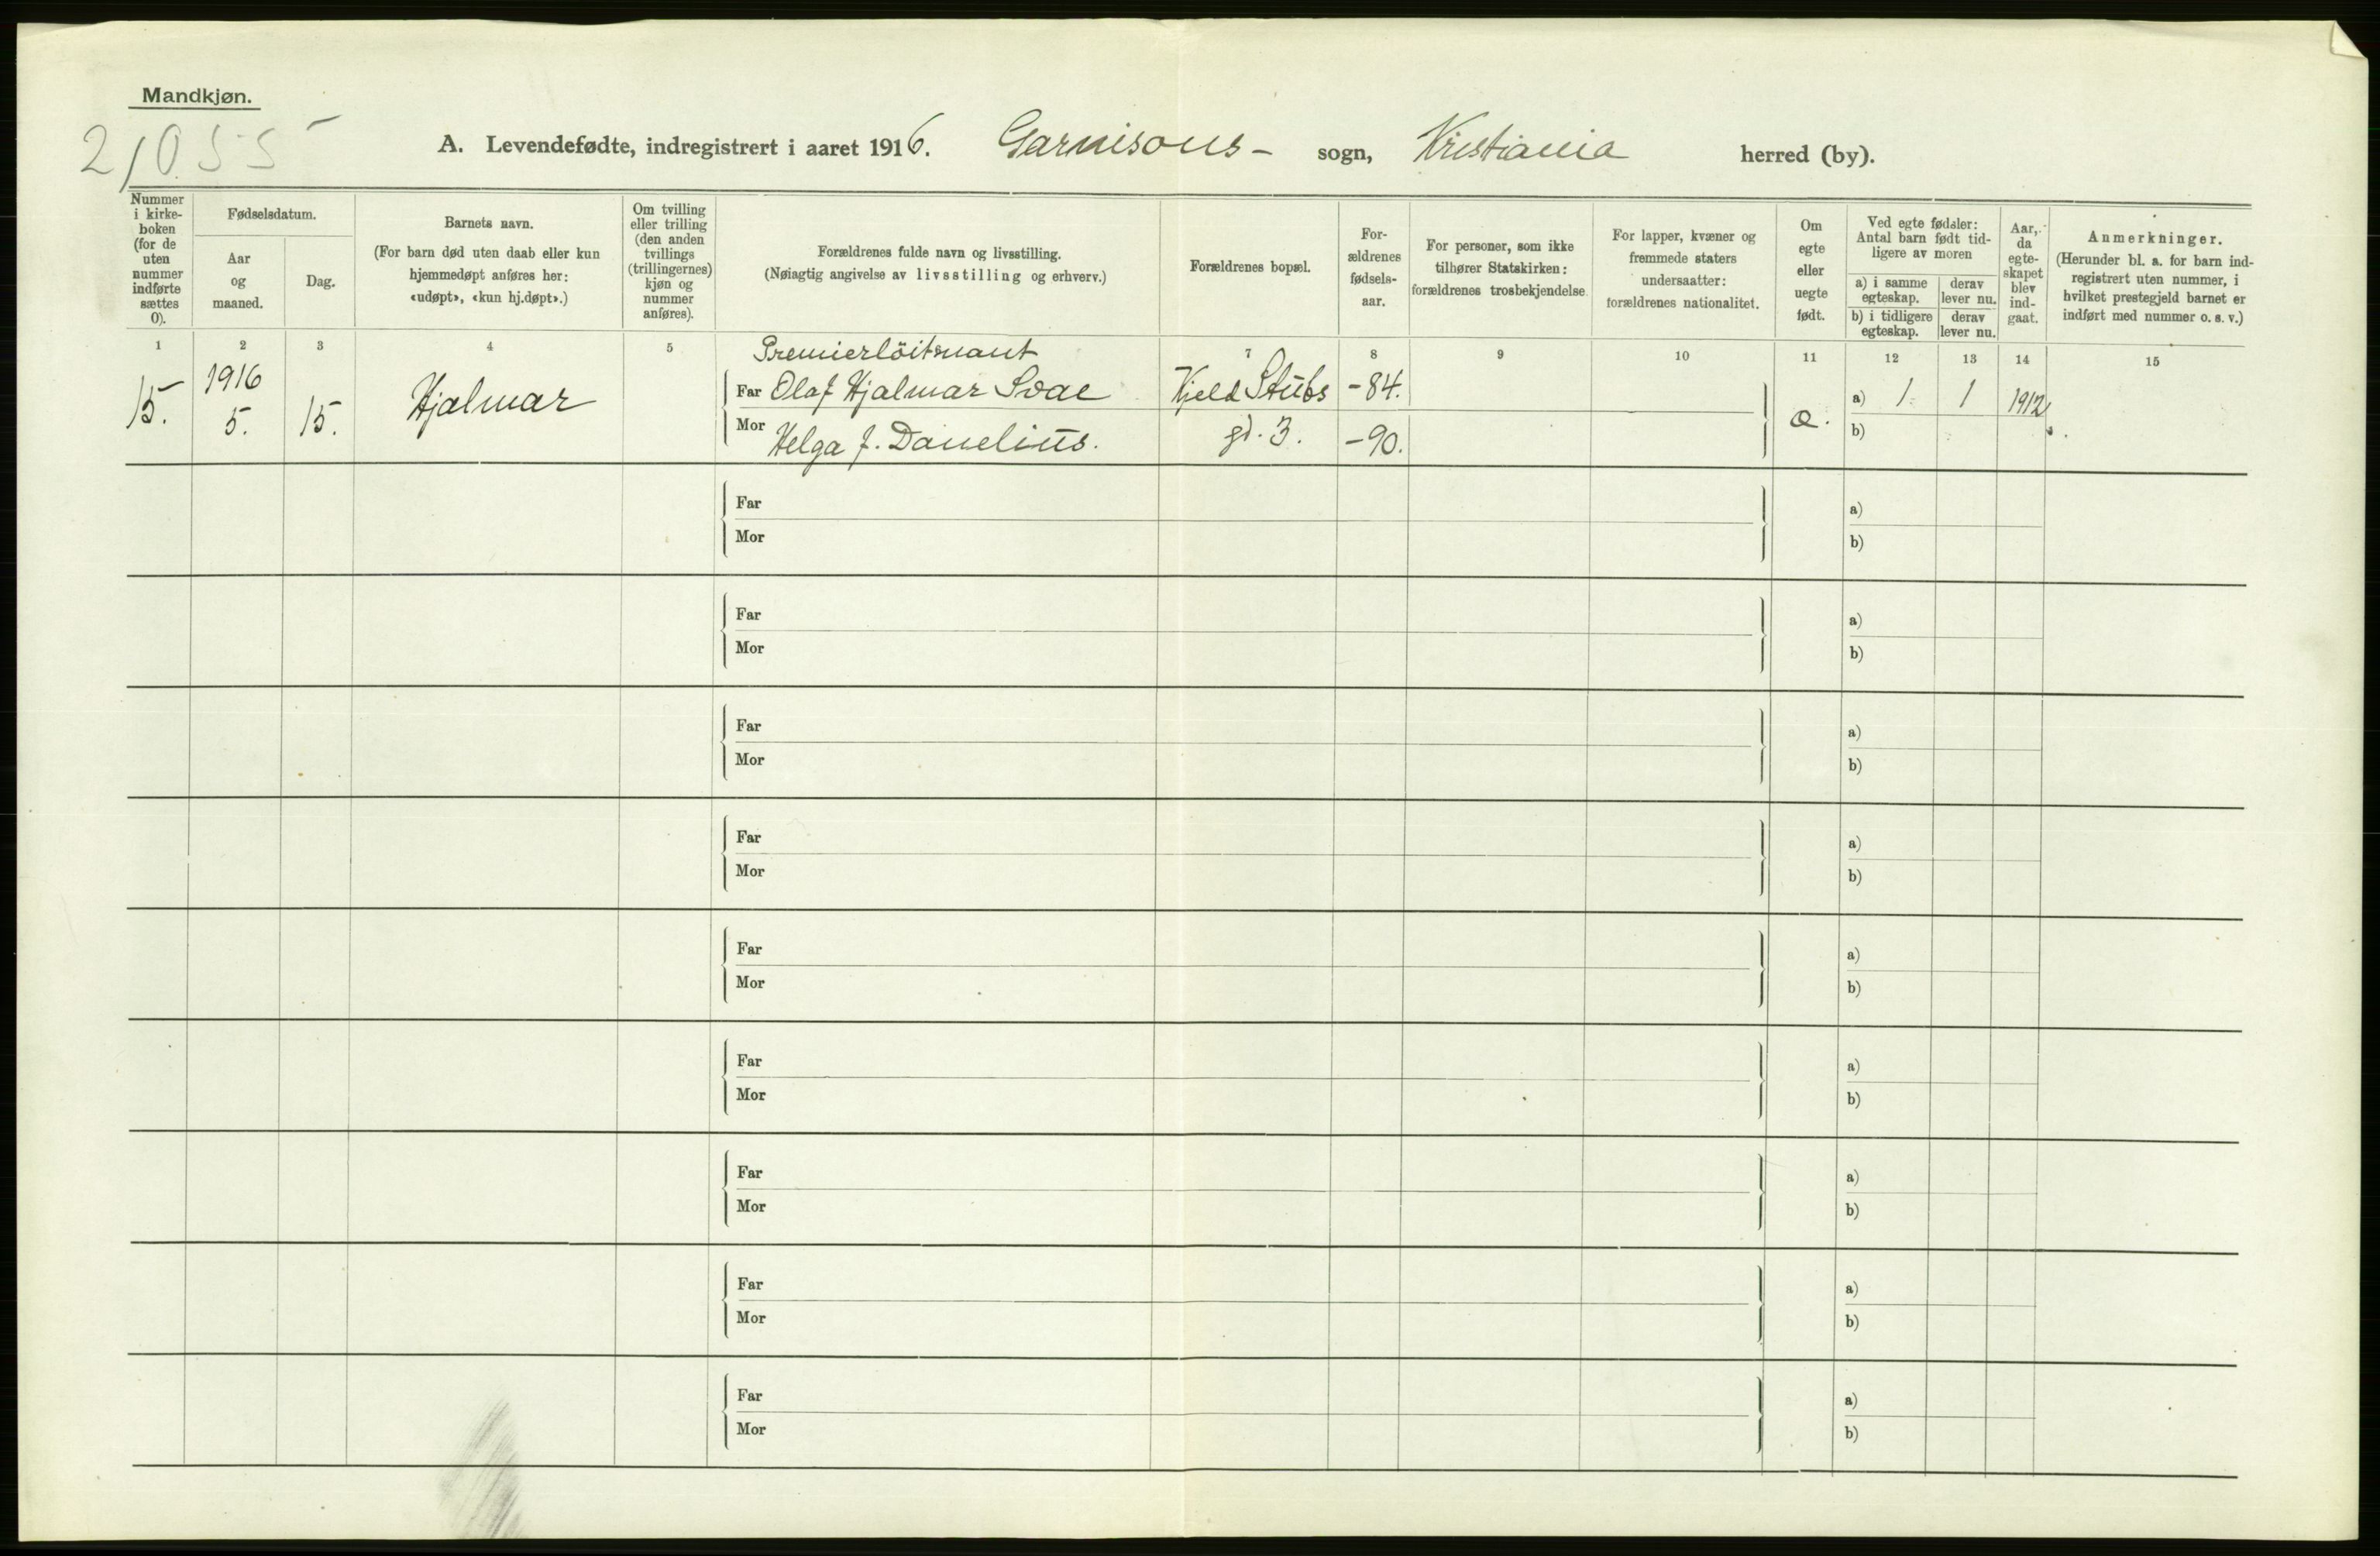 Mandkjøn.
21055
A. Levendefødte, indregistrert i aaret 1916. Garnisons- sogn, Kristiania herred (by).
Nummer i kirke-boken (for de uten nummer indførte sættes 0).
Fødselsdatum.
Aar og maaned.
Dag.
Barnets navn.
(For barn død uten daab eller kun hjemmedøpt anføres her: «udøpt», «kun hj.døpt».)
Om tvilling eller trilling (den anden tvillings (trillingernes) kjøn og nummer anføres).
Forældrenes fulde navn og livsstilling.
(Nøiagtig angivelse av livsstilling og erhverv.)
Forældrenes bopæl.
For-ældrenes fødsels-aar.
For personer, som ikke tilhører Statskirken: forældrenes trosbekjendelse
For lapper, kvæner og fremmede staters undersaatter: forældrenes nationalitet.
Om egte eller uegte født.
Ved egte fødsler: Antal barn født tid-ligere av moren
a) i samme egteskap.
derav lever nu.
b) i tidligere egteskap.
derav lever nu.
Aar, da egte-skapet blev ind-gaat.
Anmerkninger.
(Herunder bl. a. for barn ind-registrert uten nummer, i hvilket prestegjeld barnet er indført med nummer o. s. v.)
1 2 3 4 5 7 8 9 10 11 12 13 14 15
Premierlöitnant
15. 1916 5. 15. Hjalmar Far Olaf Hjalmar Svae Kjeld Stubs -84. a) 1 1 1912
Mor Helga f. Danelius. gd. 3. -90. e. b)
Far a)
Mor b)
Far a)
Mor b)
Far a)
Mor b)
Far a)
Mor b)
Far a)
Mor b)
Far a)
Mor b)
Far a)
Mor b)
Far a)
Mor b)
Far a)
Mor b)